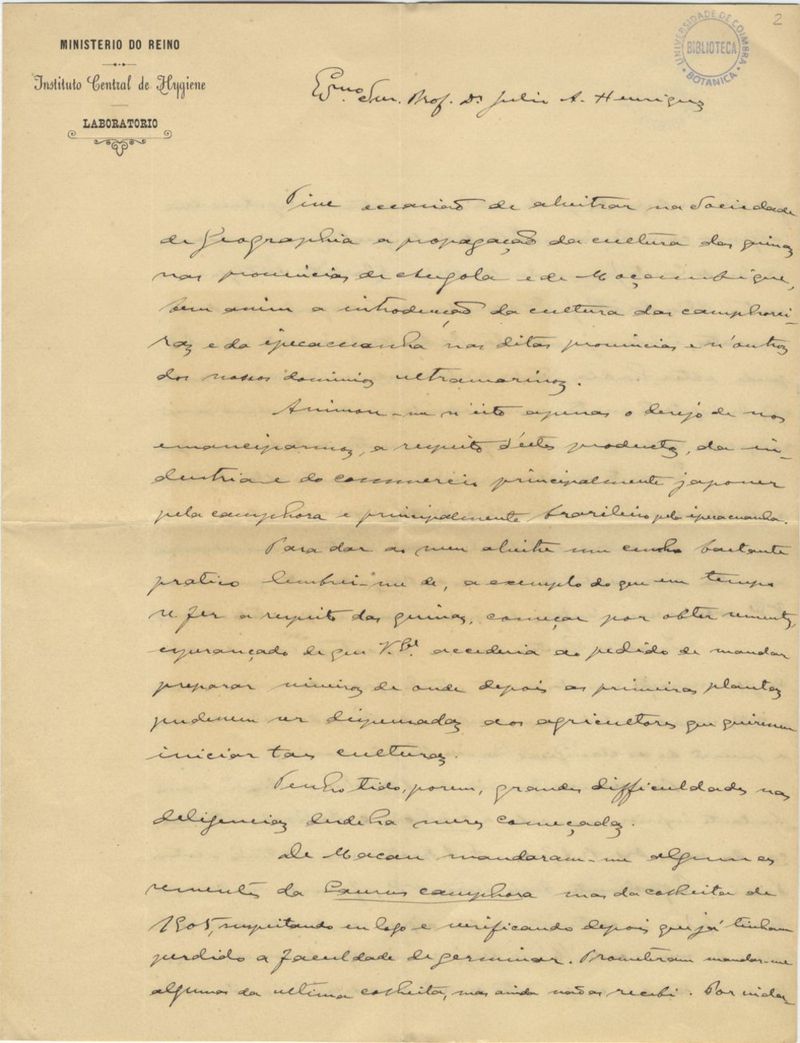 2
UNIVERSIDADE DE COIMBRA
BIBLIOTECA
BOTANICA
MINISTERIO DO REINO
Instituto Central de Hygiene
LABORATORIO
Exmo. Snr. Prof. Dr. Julio A. Henriques
Tive occasião de alvitrar na Sociedade
de Geographia a propagação da cultura das quinas
nas provincias de Angola e de Moçambique,
bem assim a introducção da cultura das camphorei-
ras e da ipecacuanha nas ditas provincias e n'outros
dos nossos dominios ultramarinos.
Animou-me n'isto apenas o desejo de nos
emanciparmos, a respeito d'estes productos, da in-
dustria e do commercio principalmente japonez
pela camphora e principalmente brasileiro pela ipecacuanha.
Para dar ao meu alvitre um cunho bastante
pratico lembrei-me de, a exemplo do que em tempo
se fez a respeito das quinas, começar por obter sementes,
esperançado de que V. Exa. accederia ao pedido de mandar
preparar viveiros de onde depois as primeiras plantas
pudessem ser dispensadas aos agricultores que quizessem
iniciar taes culturas.
Tenho tido, porem, grandes difficuldades nas
deligencias desde ha mezes começadas.
De Macau mandaram-me algumas
sementes da Laurus camphora mas da colheita de
1905, suspeitando eu logo e verificando depois que já tinham
perdido a faculdade de germinar. Prometeram mandar-me
algumas da ultima colheita, mas ainda não as recebi. Por